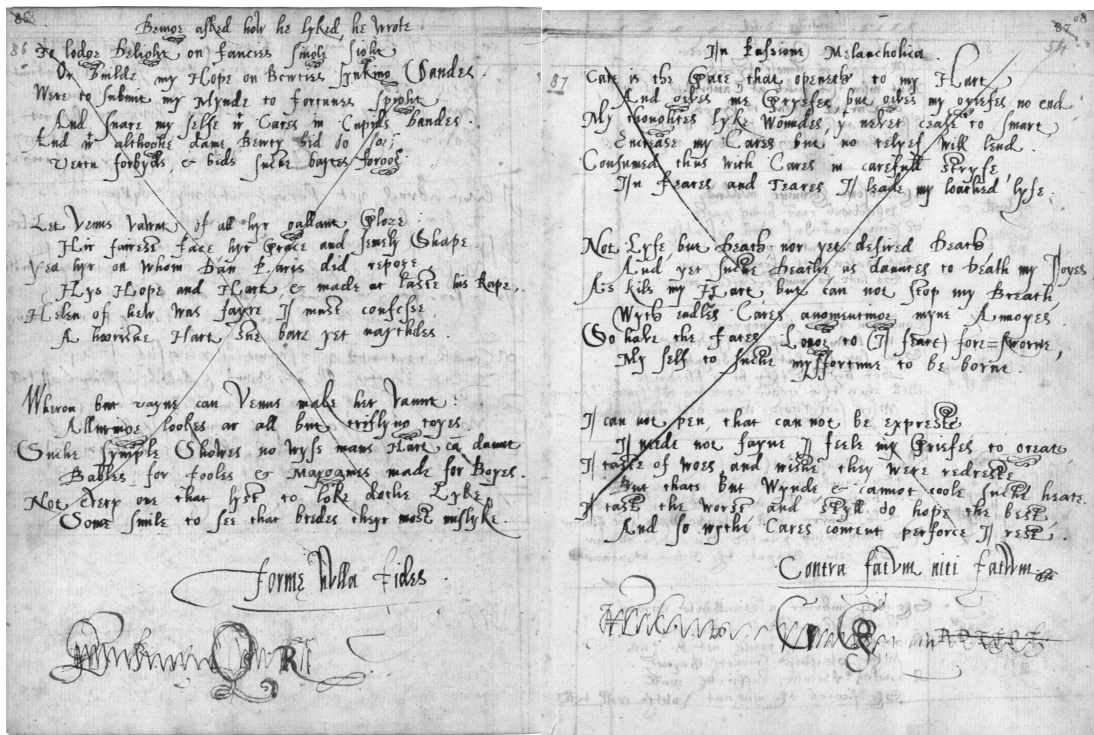 85
Beinge asked how he lyked, he wrote
86
To lodge Delight on fancies single sight
Or Builde my Hope on Bewties synking Sandes.
Were to submit my Mynde to fortunes spight
And snare my selfe wt Cares in Cupids bandes.
And wt althoghe dame Bewty bid do so:
Vertu forbyds, & bids suche baytes forgoe.
Let Venus vaunt of all hyr gallant Gloze
Hir fairest face hyr Grace and semely Shape
Yea hyr on whom Dan Paris did repose
Hys Hope and Hart & made at laste his Rape.
Helen of hew was fayre I must confesse.
A whorishe Hart she bare yet naythles
Wheron but vayne can Venus make her vaunt?
Alluringe lookes ar all but triflyng toyes
Suche symple Showes no wyse mans Hart ca daunt
Bables for fooles & Margames made for Boyes.
Not every one that lyst to loke dothe Lyke
Some smile to see that bredes theyr most mislyke.
Forme Nulla Fides
87
54
In Passione Melancholica.
87
Care is the Gate that openeth to my Hart
And gives me Gryefes, but gives my griefes no end
My thoughtes lyke Woundes, yt never cease to smart
Encrease my Cares but no relyef will lend.
Consumed thus with Cares in carefull stryfe
In feares and Teares I leade my loathed lyfe.
Not Lyfe but Death nor yet desired Death
And yet suche Deathe as dauntes to death my Joyes
As kils my Hart but can not stop my Breath
Wyth endles Cares augmentinge myne Annoyes
So have the Fates Longe to (I feare) fore=sworne,
My self to suche mysfortune to be borne.
I can not pen, that can not be expreste
I nede not fayne I feele my Griefes to greate
I taste of woes and wishe they were redreste
But thats but Wynde & cannot coole suche heate.
I taste the worst and styll do hope the best
And so wythe Cares content perforce I rest.
Contra fatum niti fatum